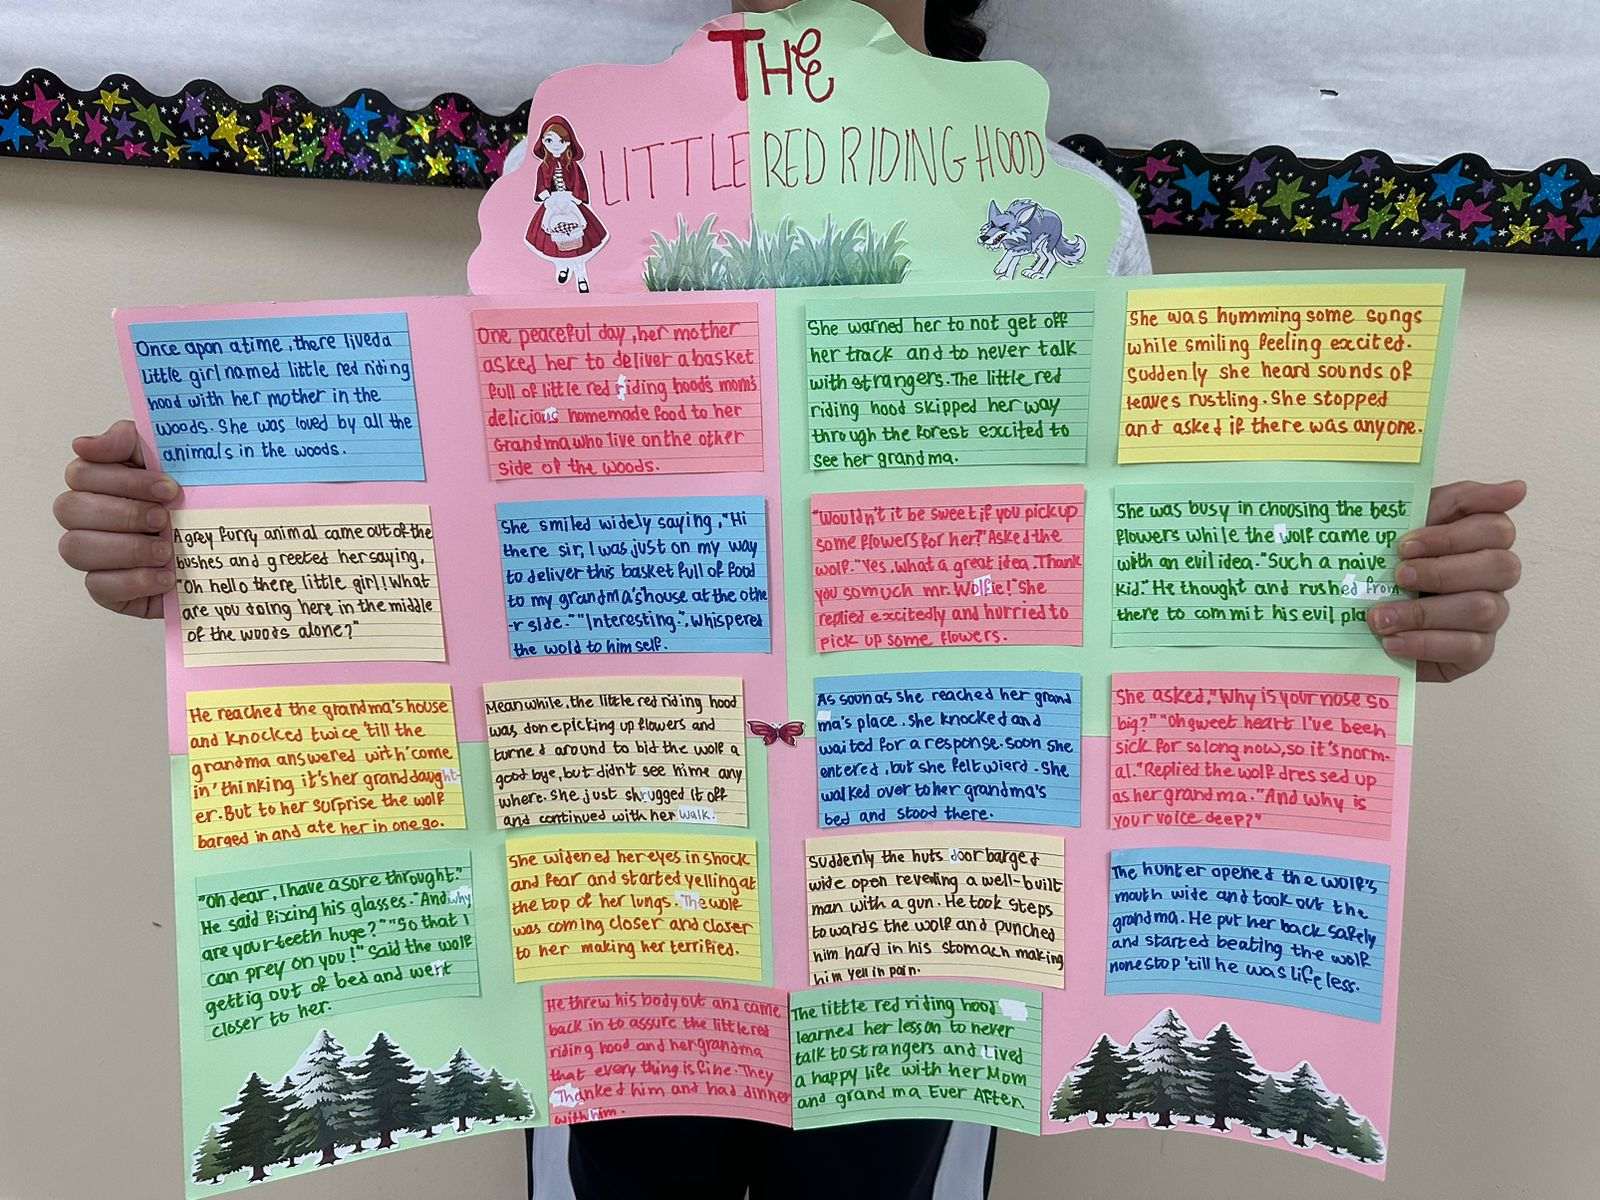 THE
LITTLE RED RIDING HOOD
Once apon a time, there lived a
Little girl named little red riding
hood with her mother in the
woods. She was loved by all the
animals in the woods.
One peaceful day, her mother
asked her to deliver a basket
full of little red riding hood's mom's
delicious homemade food to her
Grandma who live on the other
side of the woods.
She warned her to not get off
her track and to never talk
with strangers. The little red
riding hood skipped her way
through the forest excited to
see her grandma.
She was humming some songs
while smiling feeling excited.
Suddenly she heard sounds of
leaves rustling. She stopped
and asked if there was anyone.
A grey furry animal came out of the
bushes and greeted her saying,
"Oh hello there little girl! What
are you doing here in the middle
of the woods alone?"
She smiled widely saying, "Hi
there sir, I was just on my way
to deliver this basket full of food
to my grandma's house at the othe
-r side." "Interesting.", whispered
the wold to him self.
"Wouldn't it be sweet if you pick up
some flowers for her?" Asked the
wolf. "Yes, what a great idea. Thank
you so much mr. Wolfie!" She
replied excitedly and hurried to
pick up some flowers.
She was busy in choosing the best
flowers while the wolf came up
with an evil idea. "Such a naive
kid." He thought and rushed from
there to commit his evil pla
He reached the grandma's house
and knocked twice 'till the
grandma answered with 'come
in' thinking it's her granddaught-
er. But to her surprise the wolf
barged in and ate her in one go.
Meanwhile, the little red riding hood
was done picking up flowers and
turned around to bid the wolf a
good bye, but didn't see hime any
where. She just shrugged it off
and continued with her walk.
As soon as she reached her grand
ma's place, she knocked and
waited for a response. Soon she
entered, but she felt wierd. She
walked over to her grandma's
bed and stood there.
She asked, "Why is your nose so
big?" "Oh sweet heart I've been
sick for so long now, so it's norm-
al." Replied the wolf dressed up
as her grandma. "And why is
your voice deep?"
"Oh dear, I have a sore throught."
He said fixing his glasses. "And why
are your teeth huge?" "So that I
can prey on you!" Said the wolf
gettig out of bed and went
closer to her.
She widened her eyes in shock
and fear and started yelling at
the top of her lungs. The wolf
was coming closer and closer
to her making her terrified.
Suddenly the huts door barged
wide open revealing a well-built
man with a gun. He took steps
towards the wolf and punched
him hard in his stomach making
him yell in pain.
The hunter opened the wolf's
mouth wide and took out the
grandma. He put her back safely
and started beating the wolf
nonestop 'till he was lifeless.
He threw his body out and came
back in to assure the little red
riding hood and her grandma
that every thing is fine. They
Thanked him and had dinner
with him.
The little red riding hood
learned her lesson to never
talk to strangers and Lived
a happy life with her Mom
and grandma Ever After.